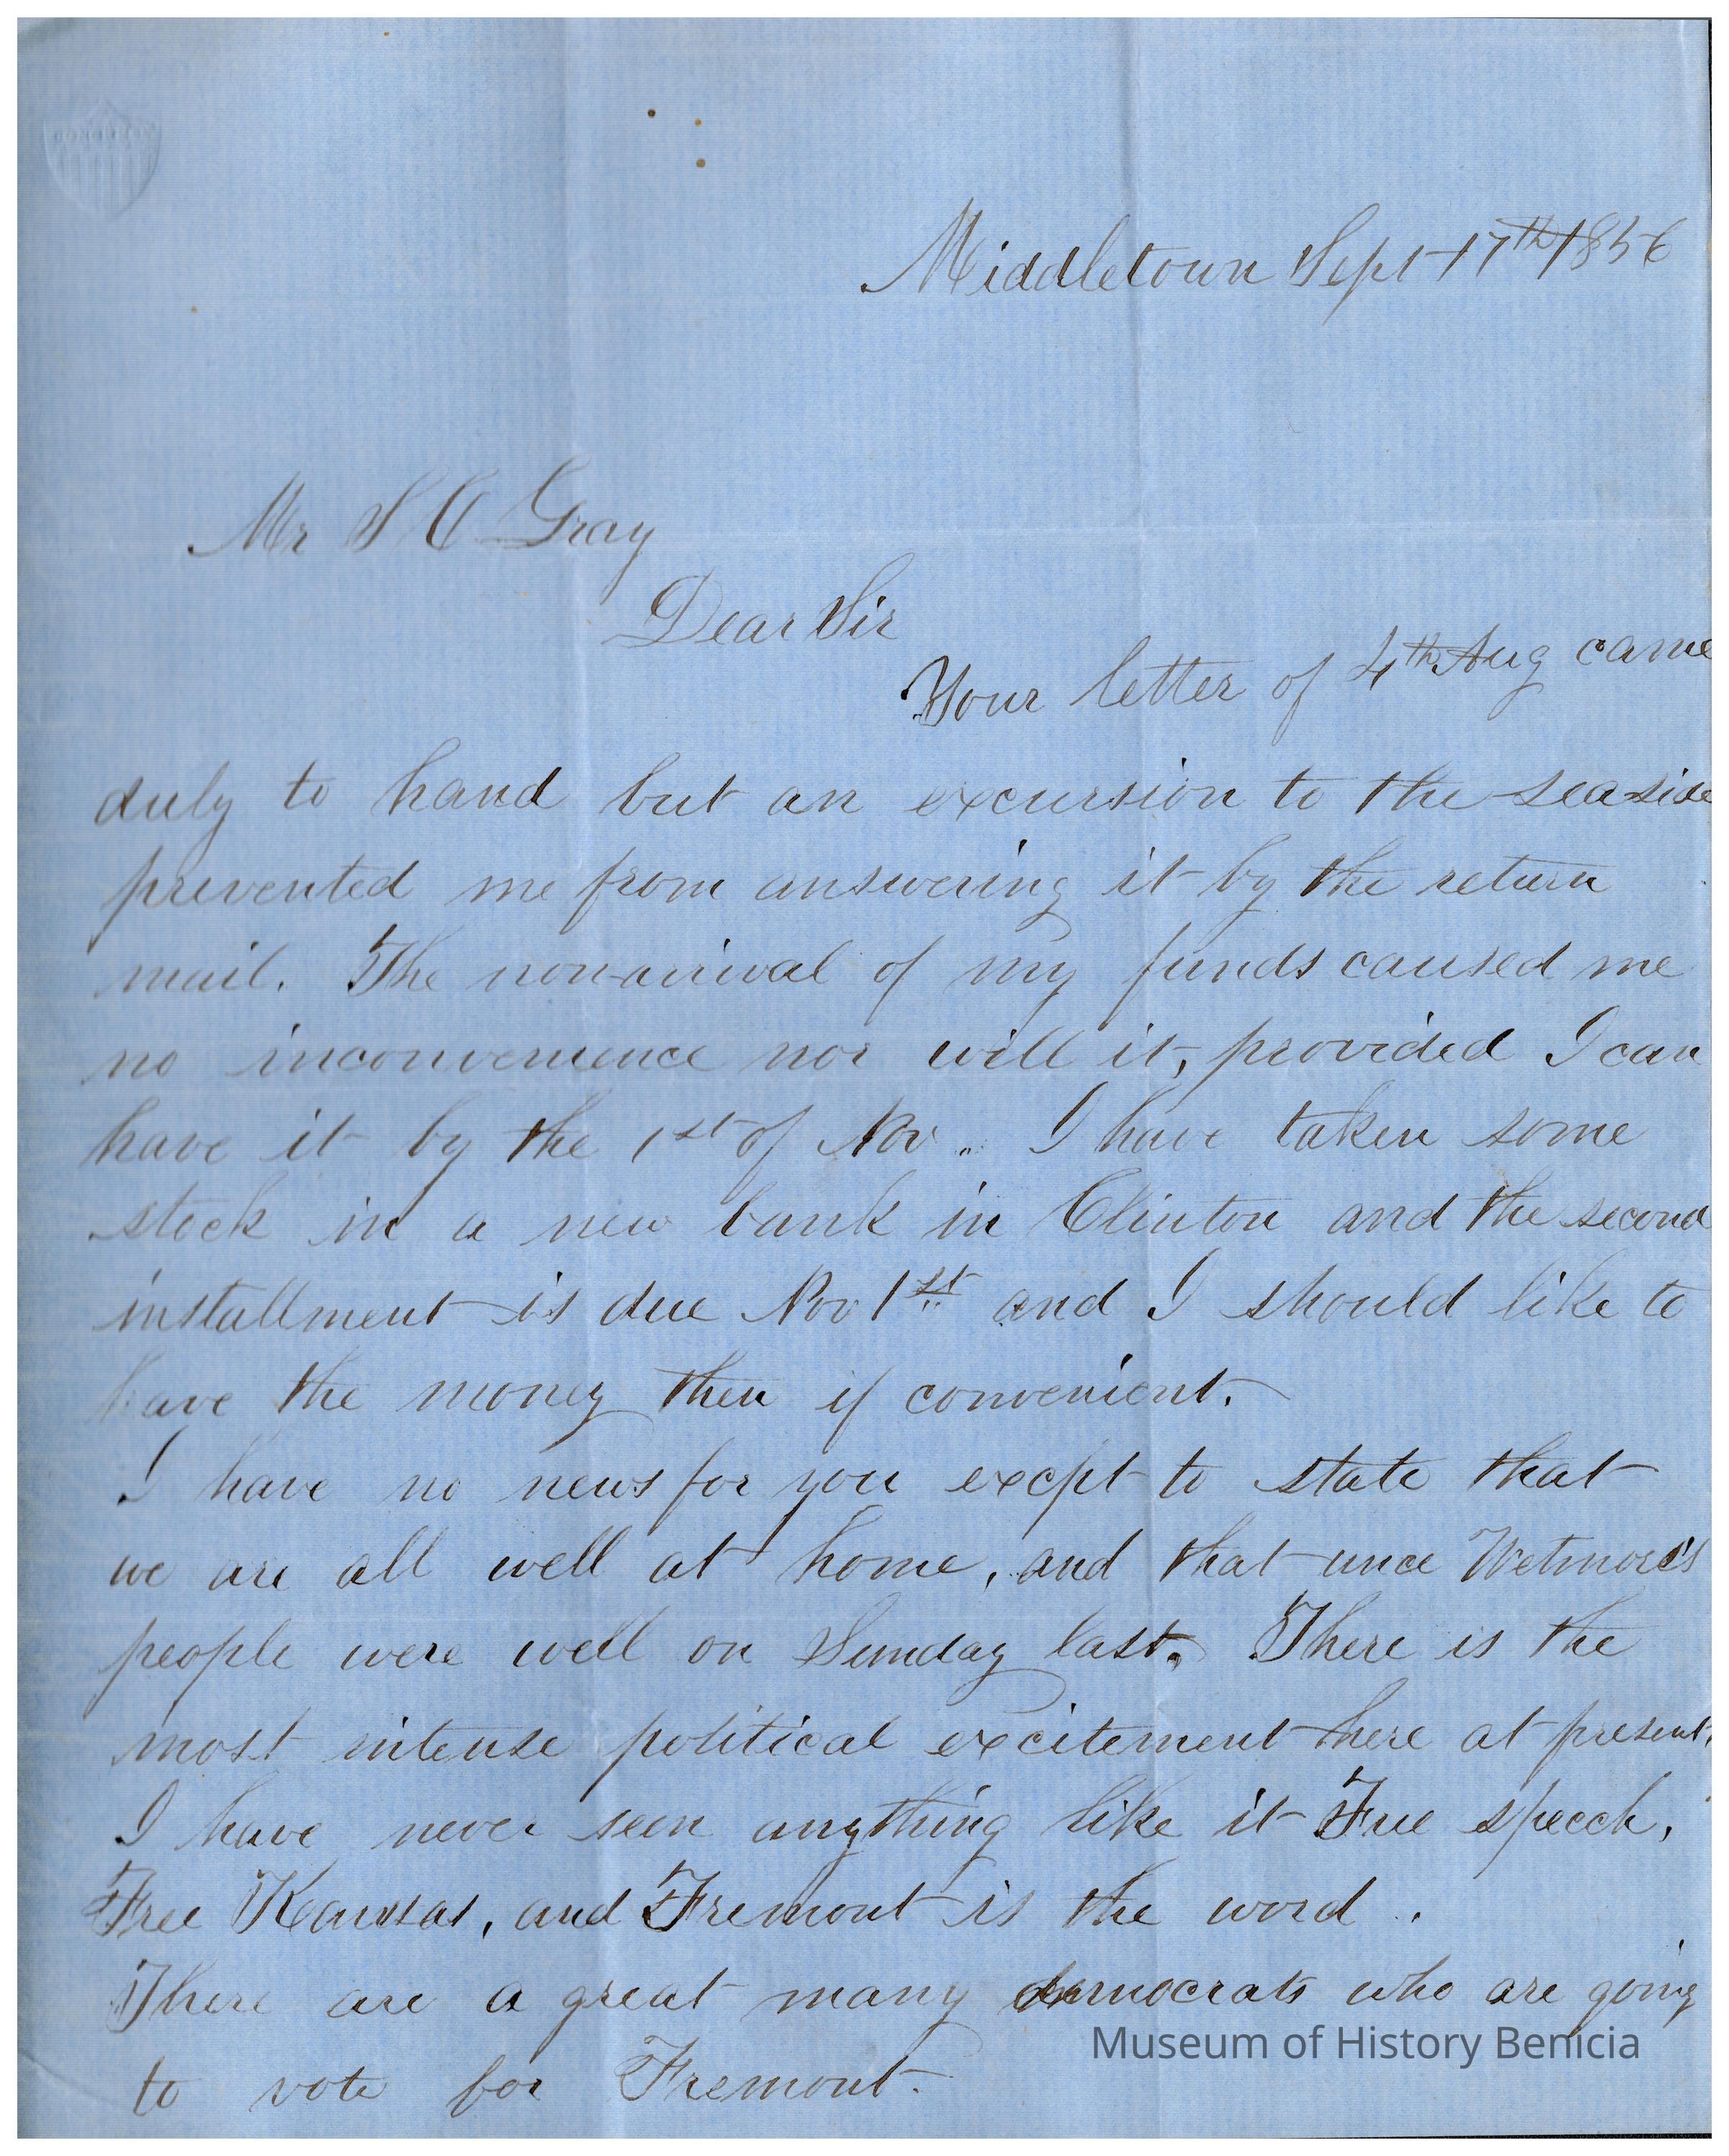 CONGRESS
Middletown Sept 17th 1856
Mr S C Gray
Dear Sir
Your letter of 4th Aug came
duly to hand but an excursion to the seaside
prevented me from answering it by the return
mail. The nonarrival of my funds caused me
no inconvenience nor will it, provided I can
have it by the 1st of Nov. I have taken some
stock in a new bank in Clinton and the second
installment is due Nov 1st and I should like to
have the money then if convenient.
I have no news for you excpt to state that
we are all well at home, and that unce Wetmore's
people were well on Sunday last. There is the
most intense political excitement here at present.
I have never seen anything like it Free speech,
Free Kansas, and Fremont is the word.
There are a great many democrats who are going
to vote for Fremont.
Museum of History Benicia